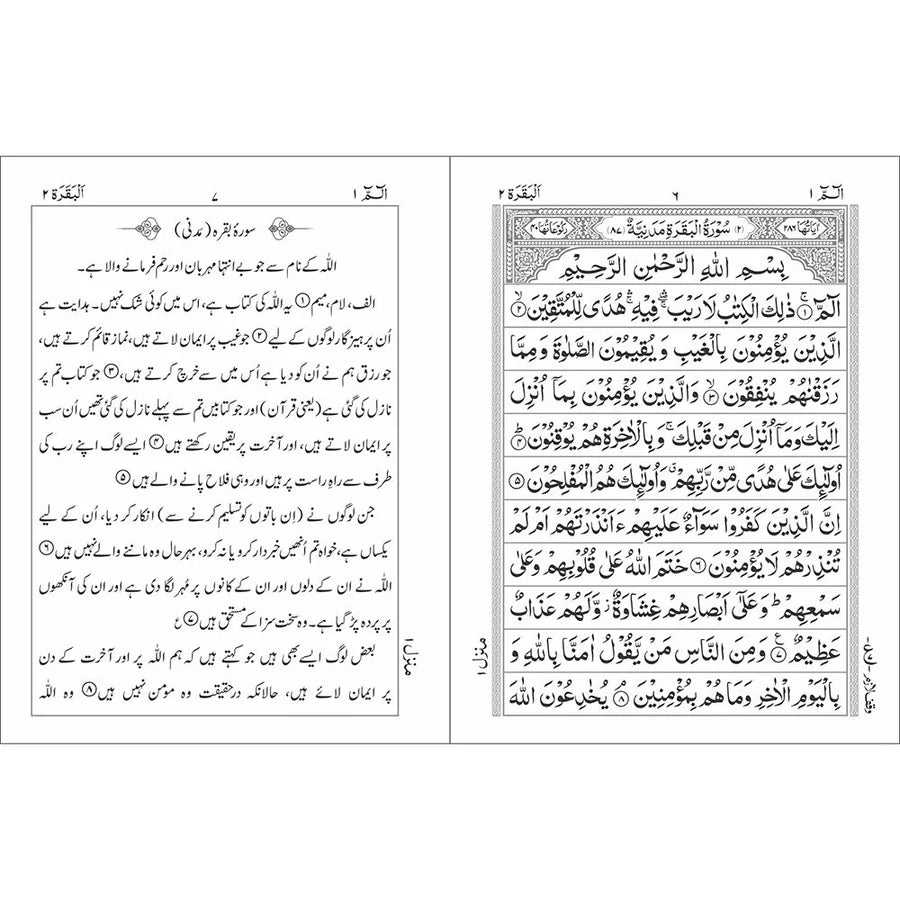 الٓمّٓ ١
٦
اَلْبَقَرَة ٢
اٰیَاتُهَا ٢٨٦
(٢) سُوْرَةُ الْبَقَرَةِ مَدَنِیَّةٌ (٨٧)
رُكُوْعَاتُهَا ٤٠
بِسْمِ اللّٰهِ الرَّحْمٰنِ الرَّحِیْمِ
الٓمّٓ ۚ﴿١﴾ ذٰلِكَ الْكِتٰبُ لَا رَیْبَ ۛۚ فِیْهِ ۛۚ هُدًی لِّلْمُتَّقِیْنَ ۙ﴿٢﴾
الَّذِیْنَ یُؤْمِنُوْنَ بِالْغَیْبِ وَ یُقِیْمُوْنَ الصَّلٰوةَ وَ مِمَّا
رَزَقْنٰهُمْ یُنْفِقُوْنَ ۙ﴿٣﴾ وَالَّذِیْنَ یُؤْمِنُوْنَ بِمَاۤ اُنْزِلَ
اِلَیْكَ وَ مَاۤ اُنْزِلَ مِنْ قَبْلِكَ ۚ وَ بِالْاٰخِرَةِ هُمْ یُوْقِنُوْنَ ؕ﴿٤﴾
اُولٰٓئِكَ عَلٰی هُدًی مِّنْ رَّبِّهِمْ ۗ وَ اُولٰٓئِكَ هُمُ الْمُفْلِحُوْنَ ﴿٥﴾
اِنَّ الَّذِیْنَ كَفَرُوْا سَوَآءٌ عَلَیْهِمْ ءَاَنْذَرْتَهُمْ اَمْ لَمْ
تُنْذِرْهُمْ لَا یُؤْمِنُوْنَ ﴿٦﴾ خَتَمَ اللّٰهُ عَلٰی قُلُوْبِهِمْ وَعَلٰی
سَمْعِهِمْ ؕ وَ عَلٰۤی اَبْصَارِهِمْ غِشَاوَةٌ ؗ وَّ لَهُمْ عَذَابٌ
عَظِیْمٌ ﴿٧﴾ ع وَمِنَ النَّاسِ مَنْ یَّقُوْلُ اٰمَنَّا بِاللّٰهِ وَ
بِالْیَوْمِ الْاٰخِرِ وَمَا هُمْ بِمُؤْمِنِیْنَ ۘ﴿٨﴾ یُخٰدِعُوْنَ اللّٰهَ
منزل ١
الٓمّٓ ١
٧
اَلْبَقَرَة ٢
سورۂ بقرہ (مَدنی)
اللہ کے نام سے جو بے انتہا مہربان اور رحم فرمانے والا ہے۔
الف، لام، میم ﴿١﴾ یہ اللہ کی کتاب ہے، اس میں کوئی شک نہیں۔ ہدایت ہے
اُن پرہیزگار لوگوں کے لیے ﴿٢﴾ جو غیب پر ایمان لاتے ہیں، نماز قائم کرتے ہیں،
جو رزق ہم نے اُن کو دیا ہے اُس میں سے خرچ کرتے ہیں، ﴿٣﴾ جو کتاب تم پر
نازل کی گئی ہے (یعنی قرآن) اور جو کتابیں تم سے پہلے نازل کی گئی تھیں اُن سب
پر ایمان لاتے ہیں، اور آخرت پر یقین رکھتے ہیں ﴿٤﴾ ایسے لوگ اپنے رب کی
طرف سے راہِ راست پر ہیں اور وہی فلاح پانے والے ہیں ﴿٥﴾
جن لوگوں نے (اِن باتوں کو تسلیم کرنے سے) انکار کر دیا، اُن کے لیے
یکساں ہے، خواہ تم اُنھیں خبردار کرو یا نہ کرو، بہرحال وہ ماننے والے نہیں ہیں ﴿٦﴾
اللہ نے ان کے دلوں اور ان کے کانوں پر مُہر لگا دی ہے اور ان کی آنکھوں
پر پردہ پڑ گیا ہے۔ وہ سخت سزا کے مستحق ہیں ﴿٧﴾ ع
بعض لوگ ایسے بھی ہیں جو کہتے ہیں کہ ہم اللہ پر اور آخرت کے دن
پر ایمان لائے ہیں، حالانکہ درحقیقت وہ مومن نہیں ہیں ﴿٨﴾ وہ اللہ
منزل ١